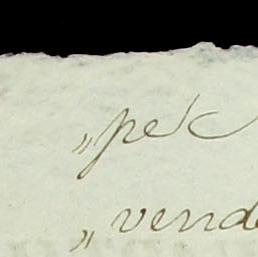 „pec
„vend